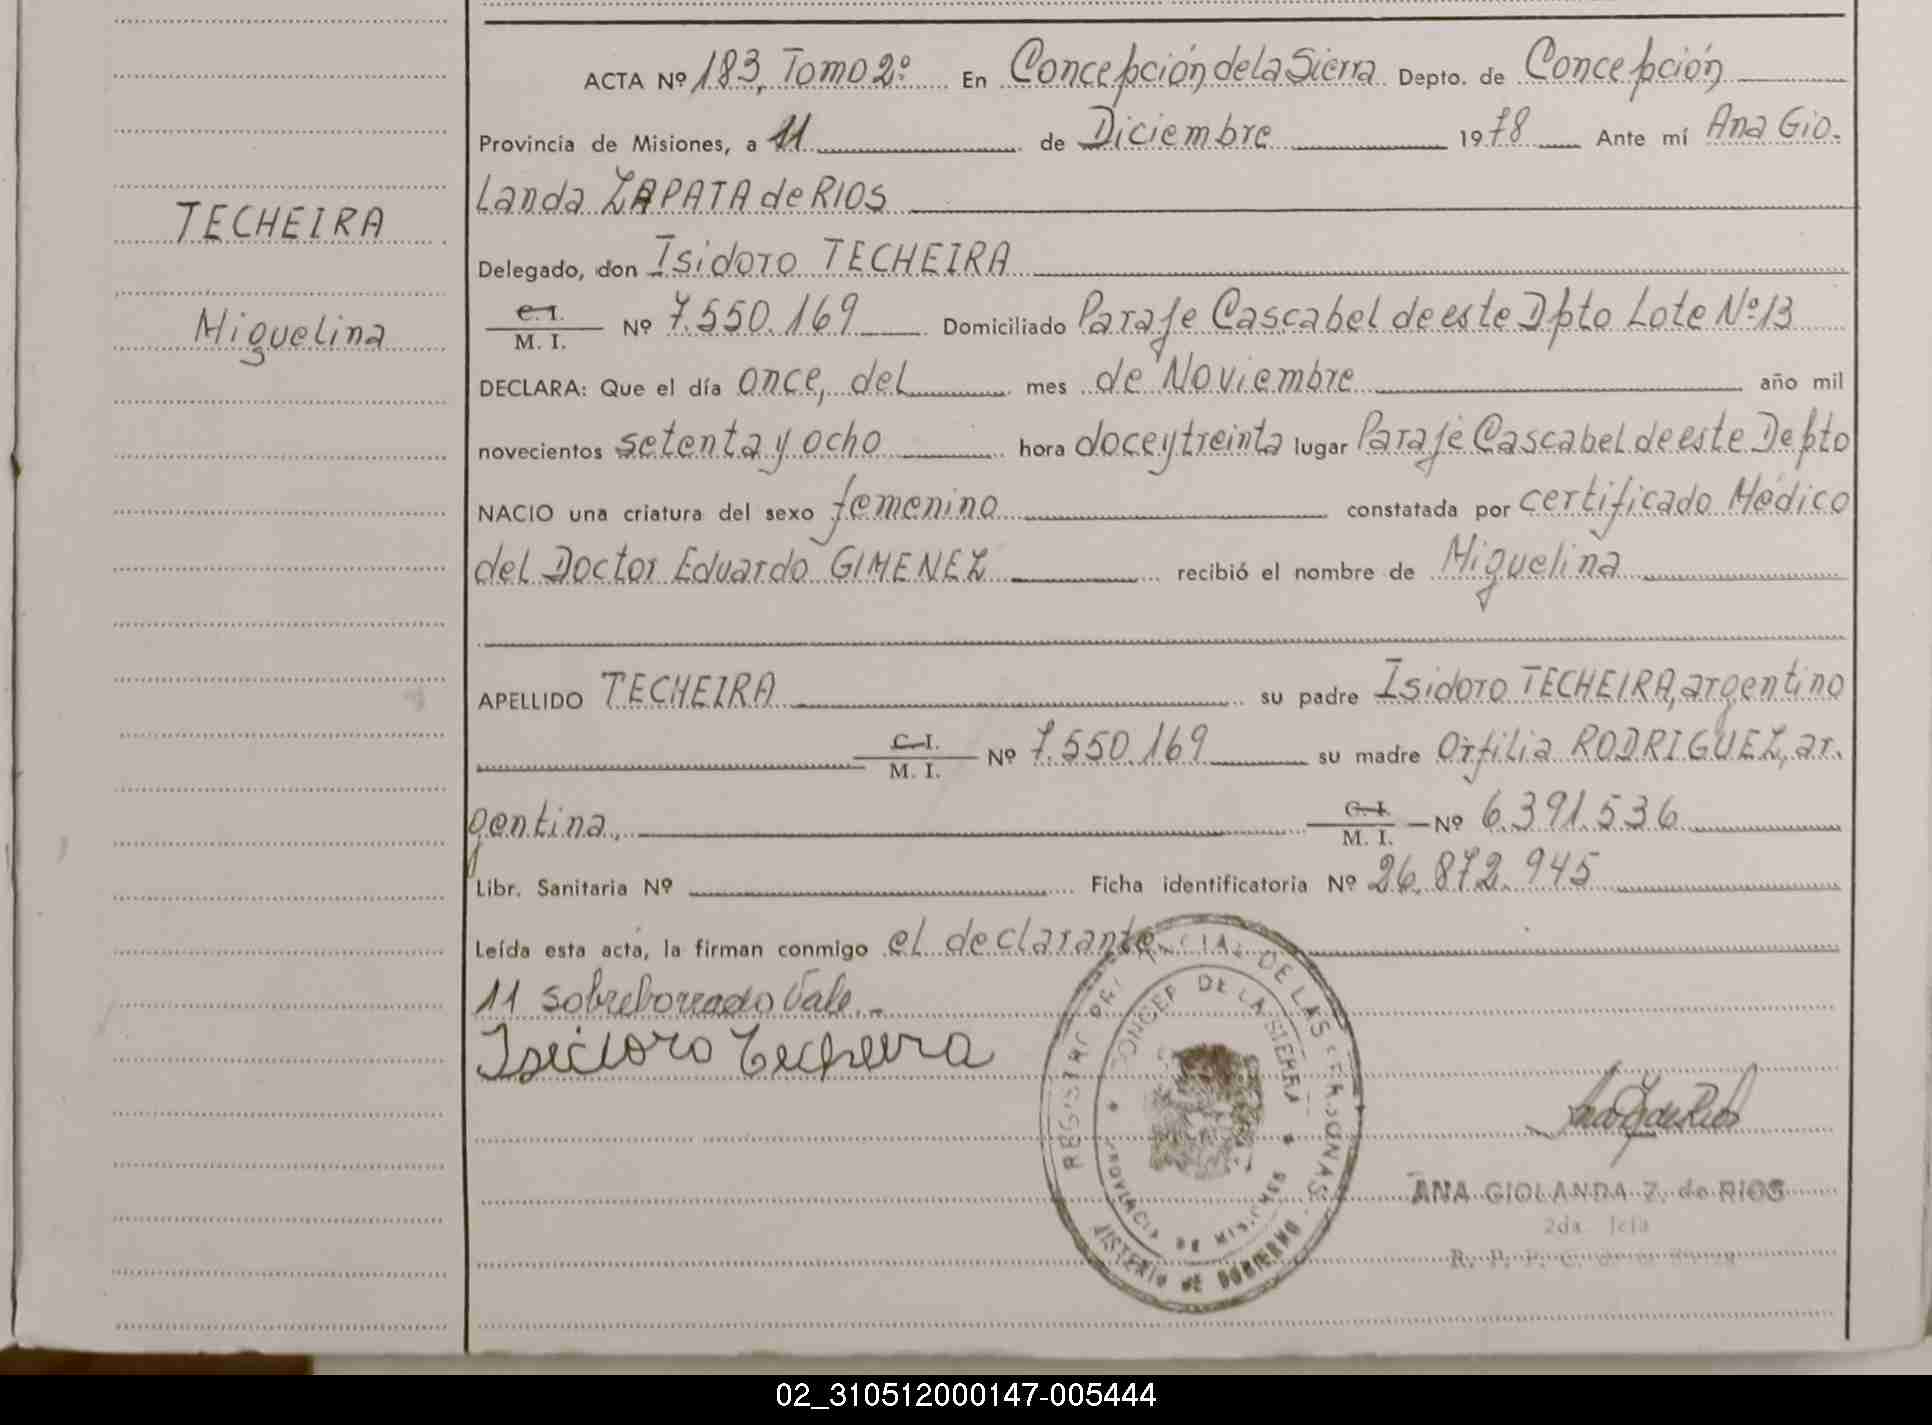 TECHEIRA
Miguelina
ACTA Nº 183, Tomo 2º En Concepción de la Sierra Depto. de Concepción
Provincia de Misiones, a 11 de Diciembre 1978 Ante mí Ana Gio-
Landa ZAPATA de RIOS
Delegado, don Isidoro TECHEIRA
C.I. M. I. Nº 7.550.169 Domiciliado Paraje Cascabel de este Dpto Lote Nº 13
DECLARA: Que el día once, del mes de Noviembre año mil
novecientos setenta y ocho hora doce y treinta lugar Paraje Cascabel de este Depto
NACIO una criatura del sexo femenino constatada por certificado Médico
del Doctor Eduardo GIMENEZ recibió el nombre de Miguelina
APELLIDO TECHEIRA su padre Isidoro TECHEIRA, argentino
C.I. M. I. Nº 7.550.169 su madre Orfilia RODRIGUEZ, ar-
gentina. C.I. M. I. Nº 6.391.536
Libr. Sanitaria Nº Ficha identificatoria Nº 26.872.945
Leída esta acta, la firman conmigo el declarante
11 sobreborreado Vale.-
Isidoro Techeira
REGISTRO PROVINCIAL DE LAS PERSONAS
CONCEP. DE LA SIERRA
PROVINCIA DE MISIONES
MINISTERIO DE GOBIERNO
Ana Z de Rios
ANA GIOLANDA Z. de RIOS
2da. Jefa
R. P. P. C. de la Sierra
02_310512000147-005444